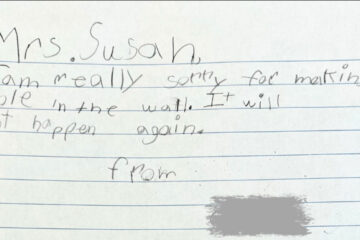 Mrs. Susan,
I am really sorry for makin
ole in the wall. It will
ot happen again.
from